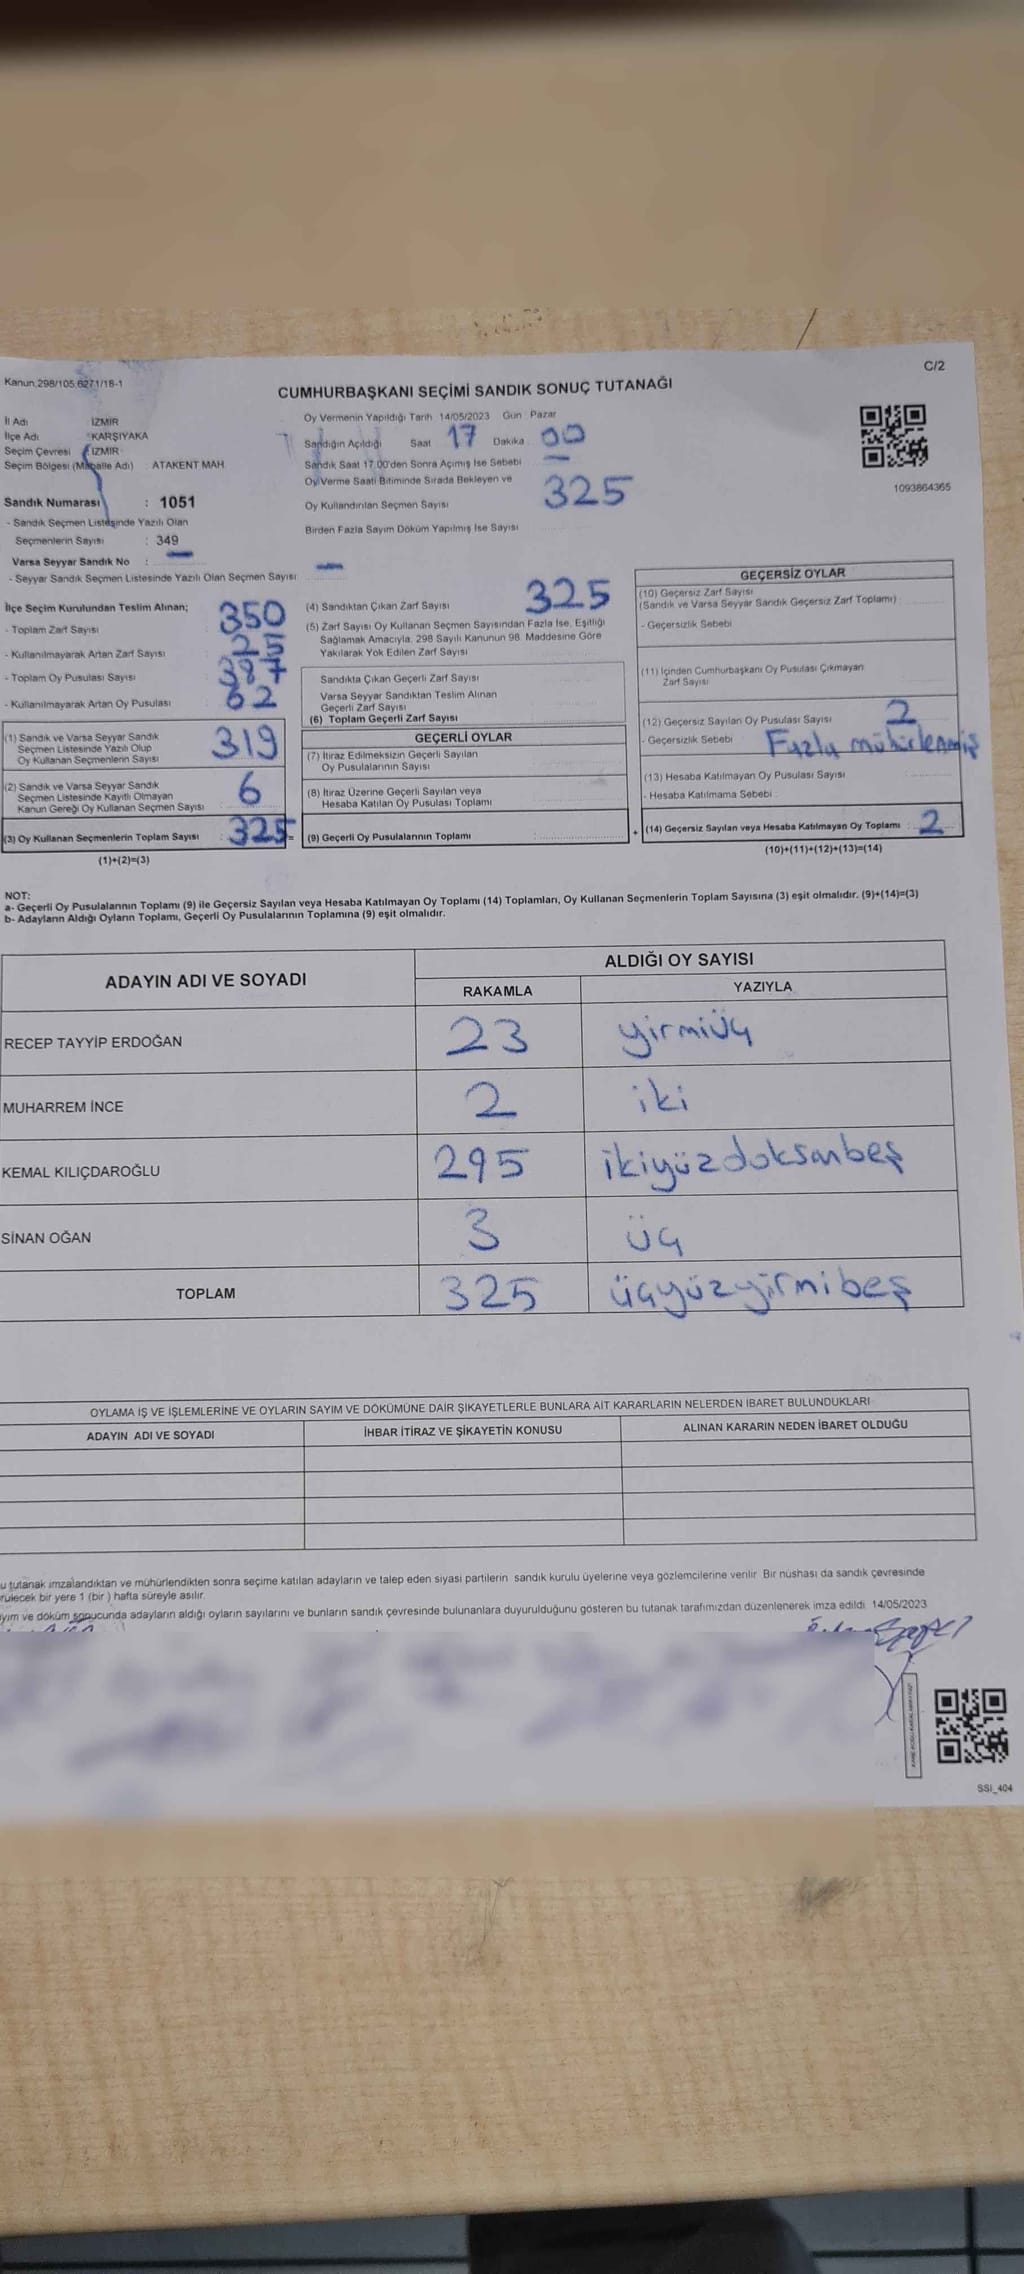 Kanun.298/105,6271/18-1
C/2
CUMHURBAŞKANI SEÇİMİ SANDIK SONUÇ TUTANAĞI
İl Adı : İZMİR
İlçe Adı : KARŞIYAKA
Seçim Çevresi : İZMİR
Seçim Bölgesi (Mahalle Adı) ATAKENT MAH
Sandık Numarası : 1051
- Sandık Seçmen Listesinde Yazılı Olan
Seçmenlerin Sayısı : 349
Varsa Seyyar Sandık No : —
- Seyyar Sandık Seçmen Listesinde Yazılı Olan Seçmen Sayısı —
Oy Vermenin Yapıldığı Tarih 14/05/2023 Gün Pazar
Sandığın Açıldığı Saat 17 Dakika 00
Sandık Saat 17.00'den Sonra Açımış İse Sebebi —
Oy Verme Saati Bitiminde Sırada Bekleyen ve
Oy Kullandırılan Seçmen Sayısı 325
Birden Fazla Sayım Döküm Yapılmış İse Sayısı
1093864365
İlçe Seçim Kurulundan Teslim Alınan;
- Toplam Zarf Sayısı : 350
- Kullanılmayarak Artan Zarf Sayısı : 25
- Toplam Oy Pusulası Sayısı : 387
- Kullanılmayarak Artan Oy Pusulası : 62
(1) Sandık ve Varsa Seyyar Sandık
Seçmen Listesinde Yazılı Olup
Oy Kullanan Seçmenlerin Sayısı 319
(2) Sandık ve Varsa Seyyar Sandık
Seçmen Listesinde Kayıtlı Olmayan
Kanun Gereği Oy Kullanan Seçmen Sayısı 6
(3) Oy Kullanan Seçmenlerin Toplam Sayısı : 325 =
(1)+(2)=(3)
(4) Sandıktan Çıkan Zarf Sayısı 325
(5) Zarf Sayısı Oy Kullanan Seçmen Sayısından Fazla İse, Eşitliği
Sağlamak Amacıyla, 298 Sayılı Kanunun 98. Maddesine Göre
Yakılarak Yok Edilen Zarf Sayısı
Sandıkta Çıkan Geçerli Zarf Sayısı
Varsa Seyyar Sandıktan Teslim Alınan
Geçerli Zarf Sayısı
(6) Toplam Geçerli Zarf Sayısı
GEÇERLİ OYLAR
(7) İtiraz Edilmeksizin Geçerli Sayılan
Oy Pusulalarının Sayısı
(8) İtiraz Üzerine Geçerli Sayılan veya
Hesaba Katılan Oy Pusulası Toplamı
(9) Geçerli Oy Pusulalarının Toplamı : +
GEÇERSİZ OYLAR
(10) Geçersiz Zarf Sayısı
(Sandık ve Varsa Seyyar Sandık Geçersiz Zarf Toplamı)
- Geçersizlik Sebebi
(11) İçinden Cumhurbaşkanı Oy Pusulası Çıkmayan
Zarf Sayısı
(12) Geçersiz Sayılan Oy Pusulası Sayısı 2
- Geçersizlik Sebebi Fazla mühürlenmiş
(13) Hesaba Katılmayan Oy Pusulası Sayısı
- Hesaba Katılmama Sebebi :
(14) Geçersiz Sayılan veya Hesaba Katılmayan Oy Toplamı : 2
(10)+(11)+(12)+(13)=(14)
NOT:
a- Geçerli Oy Pusulalarının Toplamı (9) ile Geçersiz Sayılan veya Hesaba Katılmayan Oy Toplamı (14) Toplamları, Oy Kullanan Seçmenlerin Toplam Sayısına (3) eşit olmalıdır. (9)+(14)=(3)
b- Adayların Aldığı Oyların Toplamı, Geçerli Oy Pusulalarının Toplamına (9) eşit olmalıdır.
ADAYIN ADI VE SOYADI
ALDIĞI OY SAYISI
RAKAMLA YAZIYLA
RECEP TAYYİP ERDOĞAN 23 yirmiüç
MUHARREM İNCE 2 iki
KEMAL KILIÇDAROĞLU 295 ikiyüzdoksanbeş
SİNAN OĞAN 3 üç
TOPLAM 325 üçyüzyirmibeş
OYLAMA İŞ VE İŞLEMLERİNE VE OYLARIN SAYIM VE DÖKÜMÜNE DAİR ŞİKAYETLERLE BUNLARA AİT KARARLARIN NELERDEN İBARET BULUNDUKLARI
ADAYIN ADI VE SOYADI İHBAR İTİRAZ VE ŞİKAYETİN KONUSU ALINAN KARARIN NEDEN İBARET OLDUĞU
u tutanak imzalandıktan ve mühürlendikten sonra seçime katılan adayların ve talep eden siyasi partilerin sandık kurulu üyelerine veya gözlemcilerine verilir. Bir nüshası da sandık çevresinde
rülecek bir yere 1 (bir) hafta süreyle asılır.
yım ve döküm sonucunda adayların aldığı oyların sayılarını ve bunların sandık çevresinde bulunanlara duyurulduğunu gösteren bu tutanak tarafımızdan düzenlenerek imza edildi 14/05/2023
SSİ_404